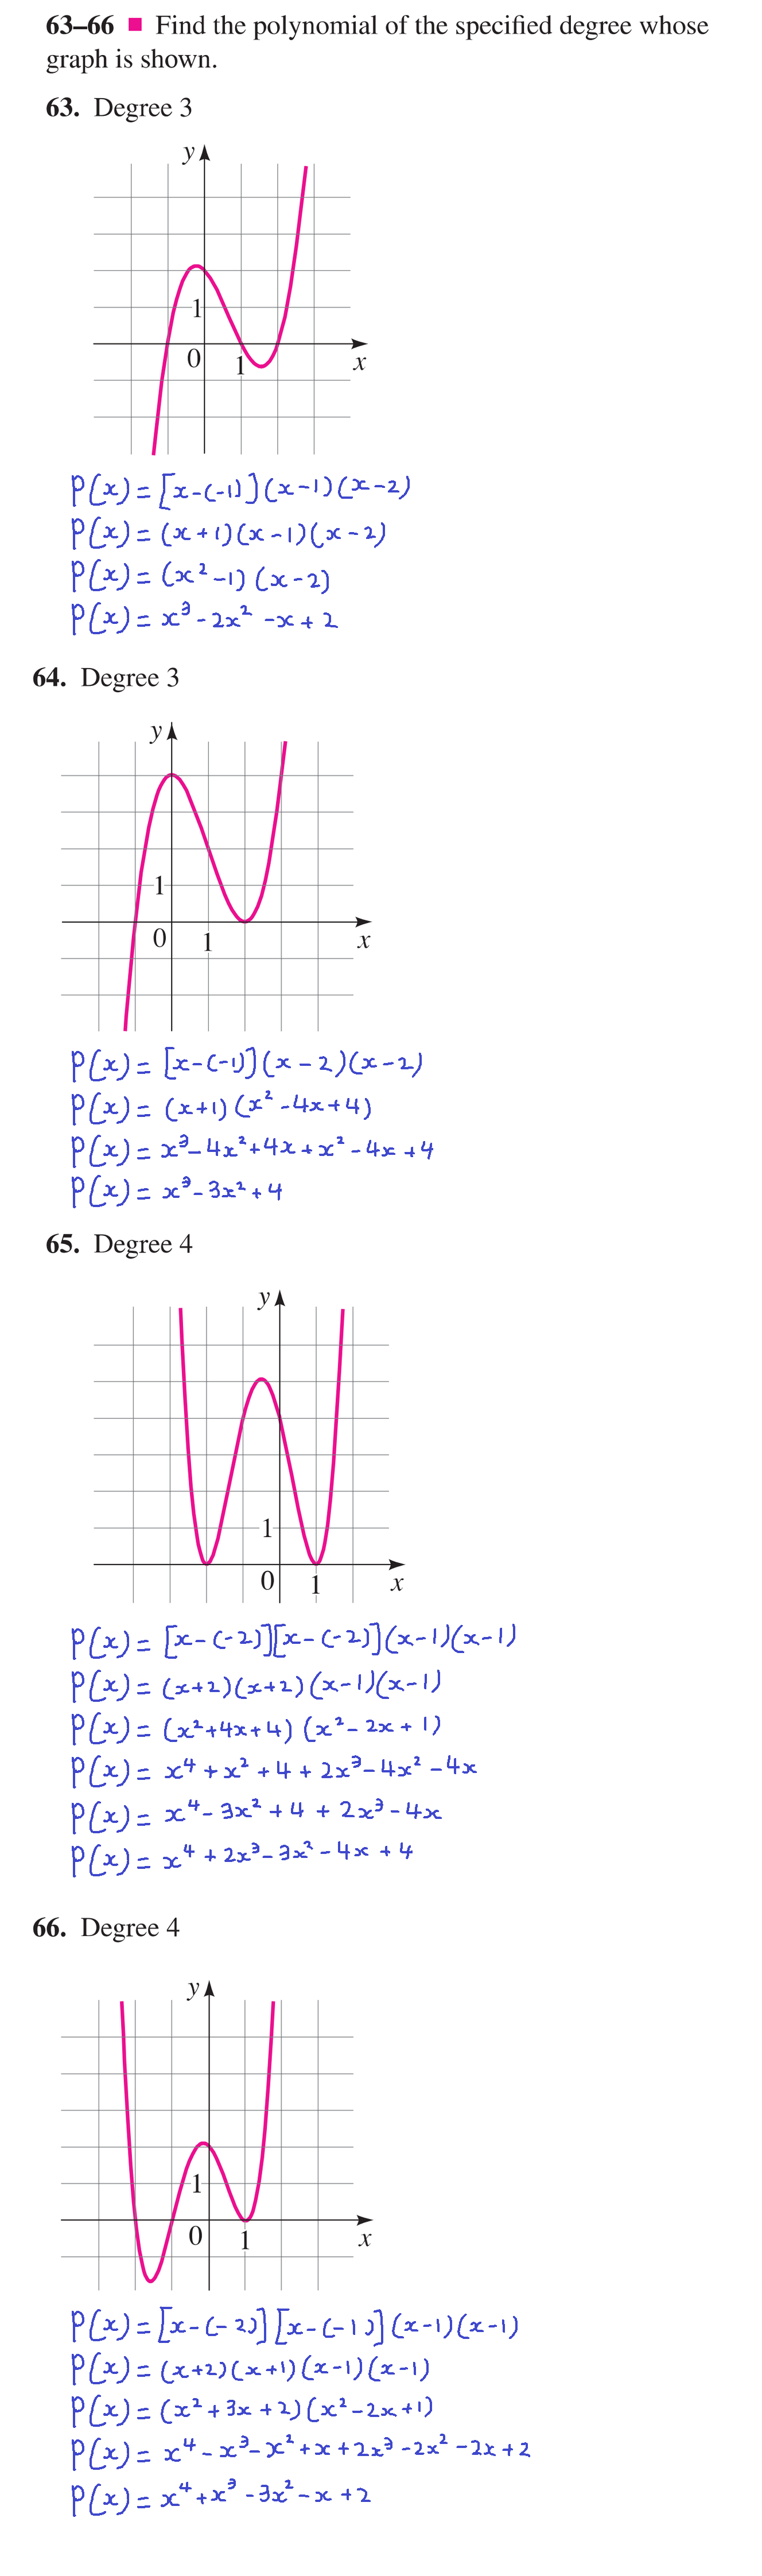 63–66 ■ Find the polynomial of the specified degree whose
graph is shown.
63. Degree 3
y
1
0
1
x
P(x) = [x-(-1)](x-1)(x-2)
P(x) = (x+1)(x-1)(x-2)
P(x) = (x²-1)(x-2)
P(x) = x³-2x²-x+2
64. Degree 3
y
1
0
1
x
P(x) = [x-(-1)](x-2)(x-2)
P(x) = (x+1)(x²-4x+4)
P(x) = x³-4x²+4x+x²-4x+4
P(x) = x³-3x²+4
65. Degree 4
y
1
0
1
x
P(x) = [x-(-2)][x-(-2)](x-1)(x-1)
P(x) = (x+2)(x+2)(x-1)(x-1)
P(x) = (x²+4x+4)(x²-2x+1)
P(x) = x⁴+x²+4+2x³-4x²-4x
P(x) = x⁴-3x²+4+2x³-4x
P(x) = x⁴+2x³-3x²-4x+4
66. Degree 4
y
1
0
1
x
P(x) = [x-(-2)][x-(-1)](x-1)(x-1)
P(x) = (x+2)(x+1)(x-1)(x-1)
P(x) = (x²+3x+2)(x²-2x+1)
P(x) = x⁴-x³-x²+x+2x³-2x²-2x+2
P(x) = x⁴+x³-3x²-x+2